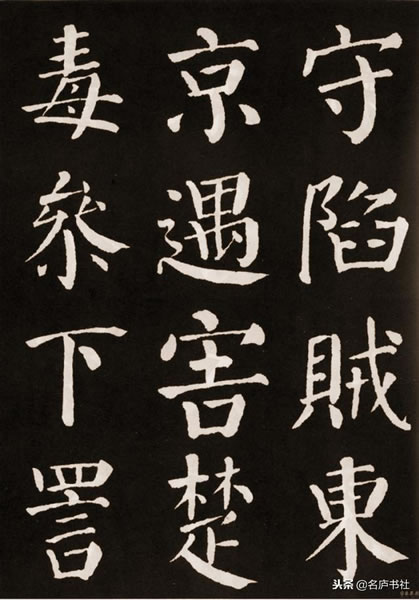 守陷賊東
京遇害楚
毒叅下詈
头条 @名庐书社